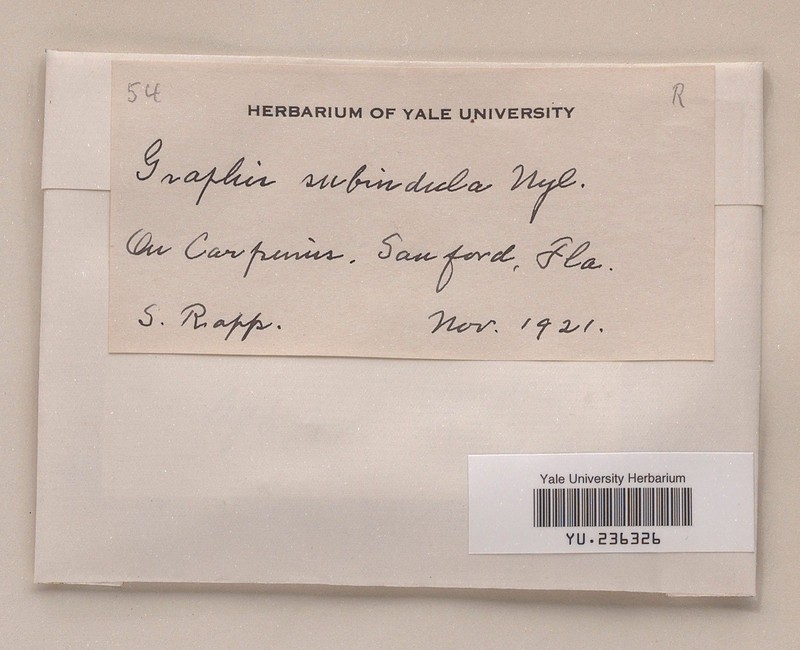 54
R
HERBARIUM OF YALE UNIVERSITY
Graphis subindula Nyl.
On Carpinus. Sanford, Fla.
S. Rapp. Nov. 1921.
Yale University Herbarium
YU.236326